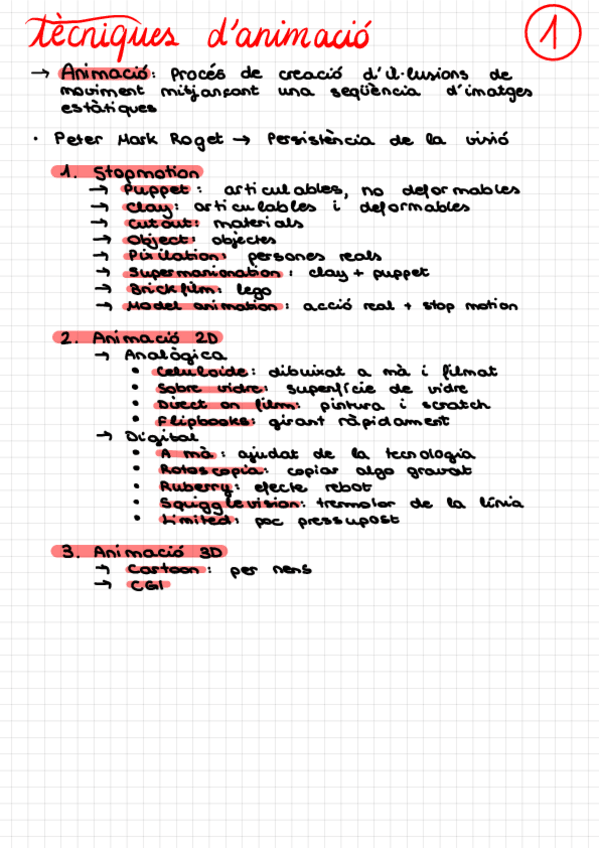 tècniques d'animació
1
→ Animació: procés de creació d'il·lusions de
moviment mitjançant una seqüència d'imatges
estàtiques
· Peter Mark Roget → Persistència de la visió
1. Stopmotion
→ Puppet: articulables, no deformables
→ Clay: articulables i deformables
→ Cutout: materials
→ Object: objectes
→ Pixilation: persones reals
→ Supermarionation: clay + puppet
→ Brickfilm: lego
→ Model animation: acció real + stop motion
2. Animació 2D
→ Analògica
• Celuloide: dibuixat a mà i filmat
• Sobre vidre: superfície de vidre
• Direct on film: pintura i scratch
• Flipbooks: girant ràpidament
→ Digital
• A mà: ajudat de la tecnologia
• Rotoscopia: copiar algo gravat
• Ruberry: efecte rebot
• Squigglevision: tremolor de la línia
• Limited: poc pressupost
3. Animació 3D
→ Cartoon: per nens
→ CGI